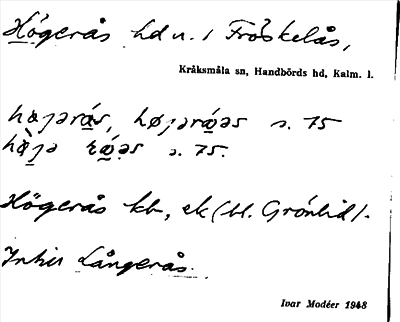 Högerås hd u. / Fröskelås,
Kråksmåla sn, Handbörds hd, Kalm. l.
højərás, højəráəs s. 75
s. 75.
Högerås kb, ek (bl. Grönlid).
Inhir Långerås.
Ivar Modéer 1943